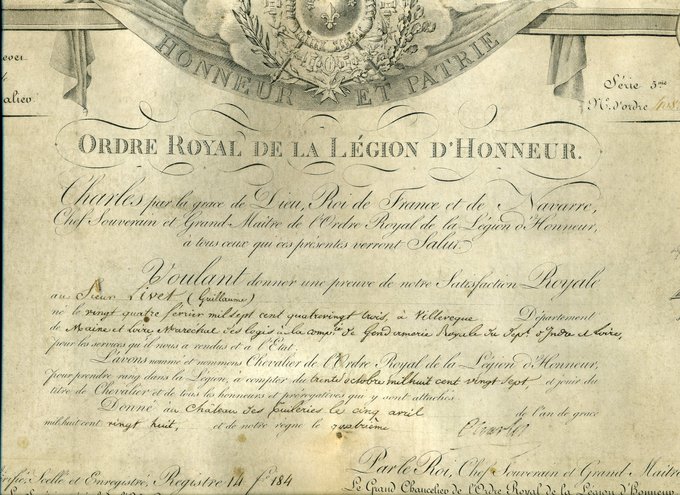 HONNEUR ET PATRIE
Série 3me
N.º d'ordre
ORDRE ROYAL DE LA LÉGION D'HONNEUR.
Charles par la grace de Dieu, Roi de France et de Navarre,
Chef Souverain et Grand Maître de l'Ordre Royal de la Légion d'Honneur,
à tous ceux qui ces présentes verront Salut.
Voulant donner une preuve de notre Satisfaction Royale
au Sieur Livet (Guillaume)
né le vingt quatre février mil sept cent quatrevingt trois, à Villevegue Département
de Maine et Loire, Maréchal des logis à la comp.ie de Gendarmerie Royale du Dep.t d'Indre et Loire,
pour les services qu'il nous a rendus et à l'État
L'avons nommé et nommons Chevalier de l'Ordre Royal de la Légion d'Honneur,
pour prendre rang dans la Légion, à compter du trente octobre mil huit cent vingt sept et jouir du
titre de Chevalier et de tous les honneurs et prérogatives qui y sont attachés.
Donné au Château des Tuileries le cinq avril de l'an de grace
mil huit cent vingt huit, et de notre règne le quatrième
Charles
Scellé et Enregistré, Registre 14 fº 184
Par le Roi, Chef Souverain et Grand Maître
Le Grand Chancelier de l'Ordre Royal de la Légion d'Honneur